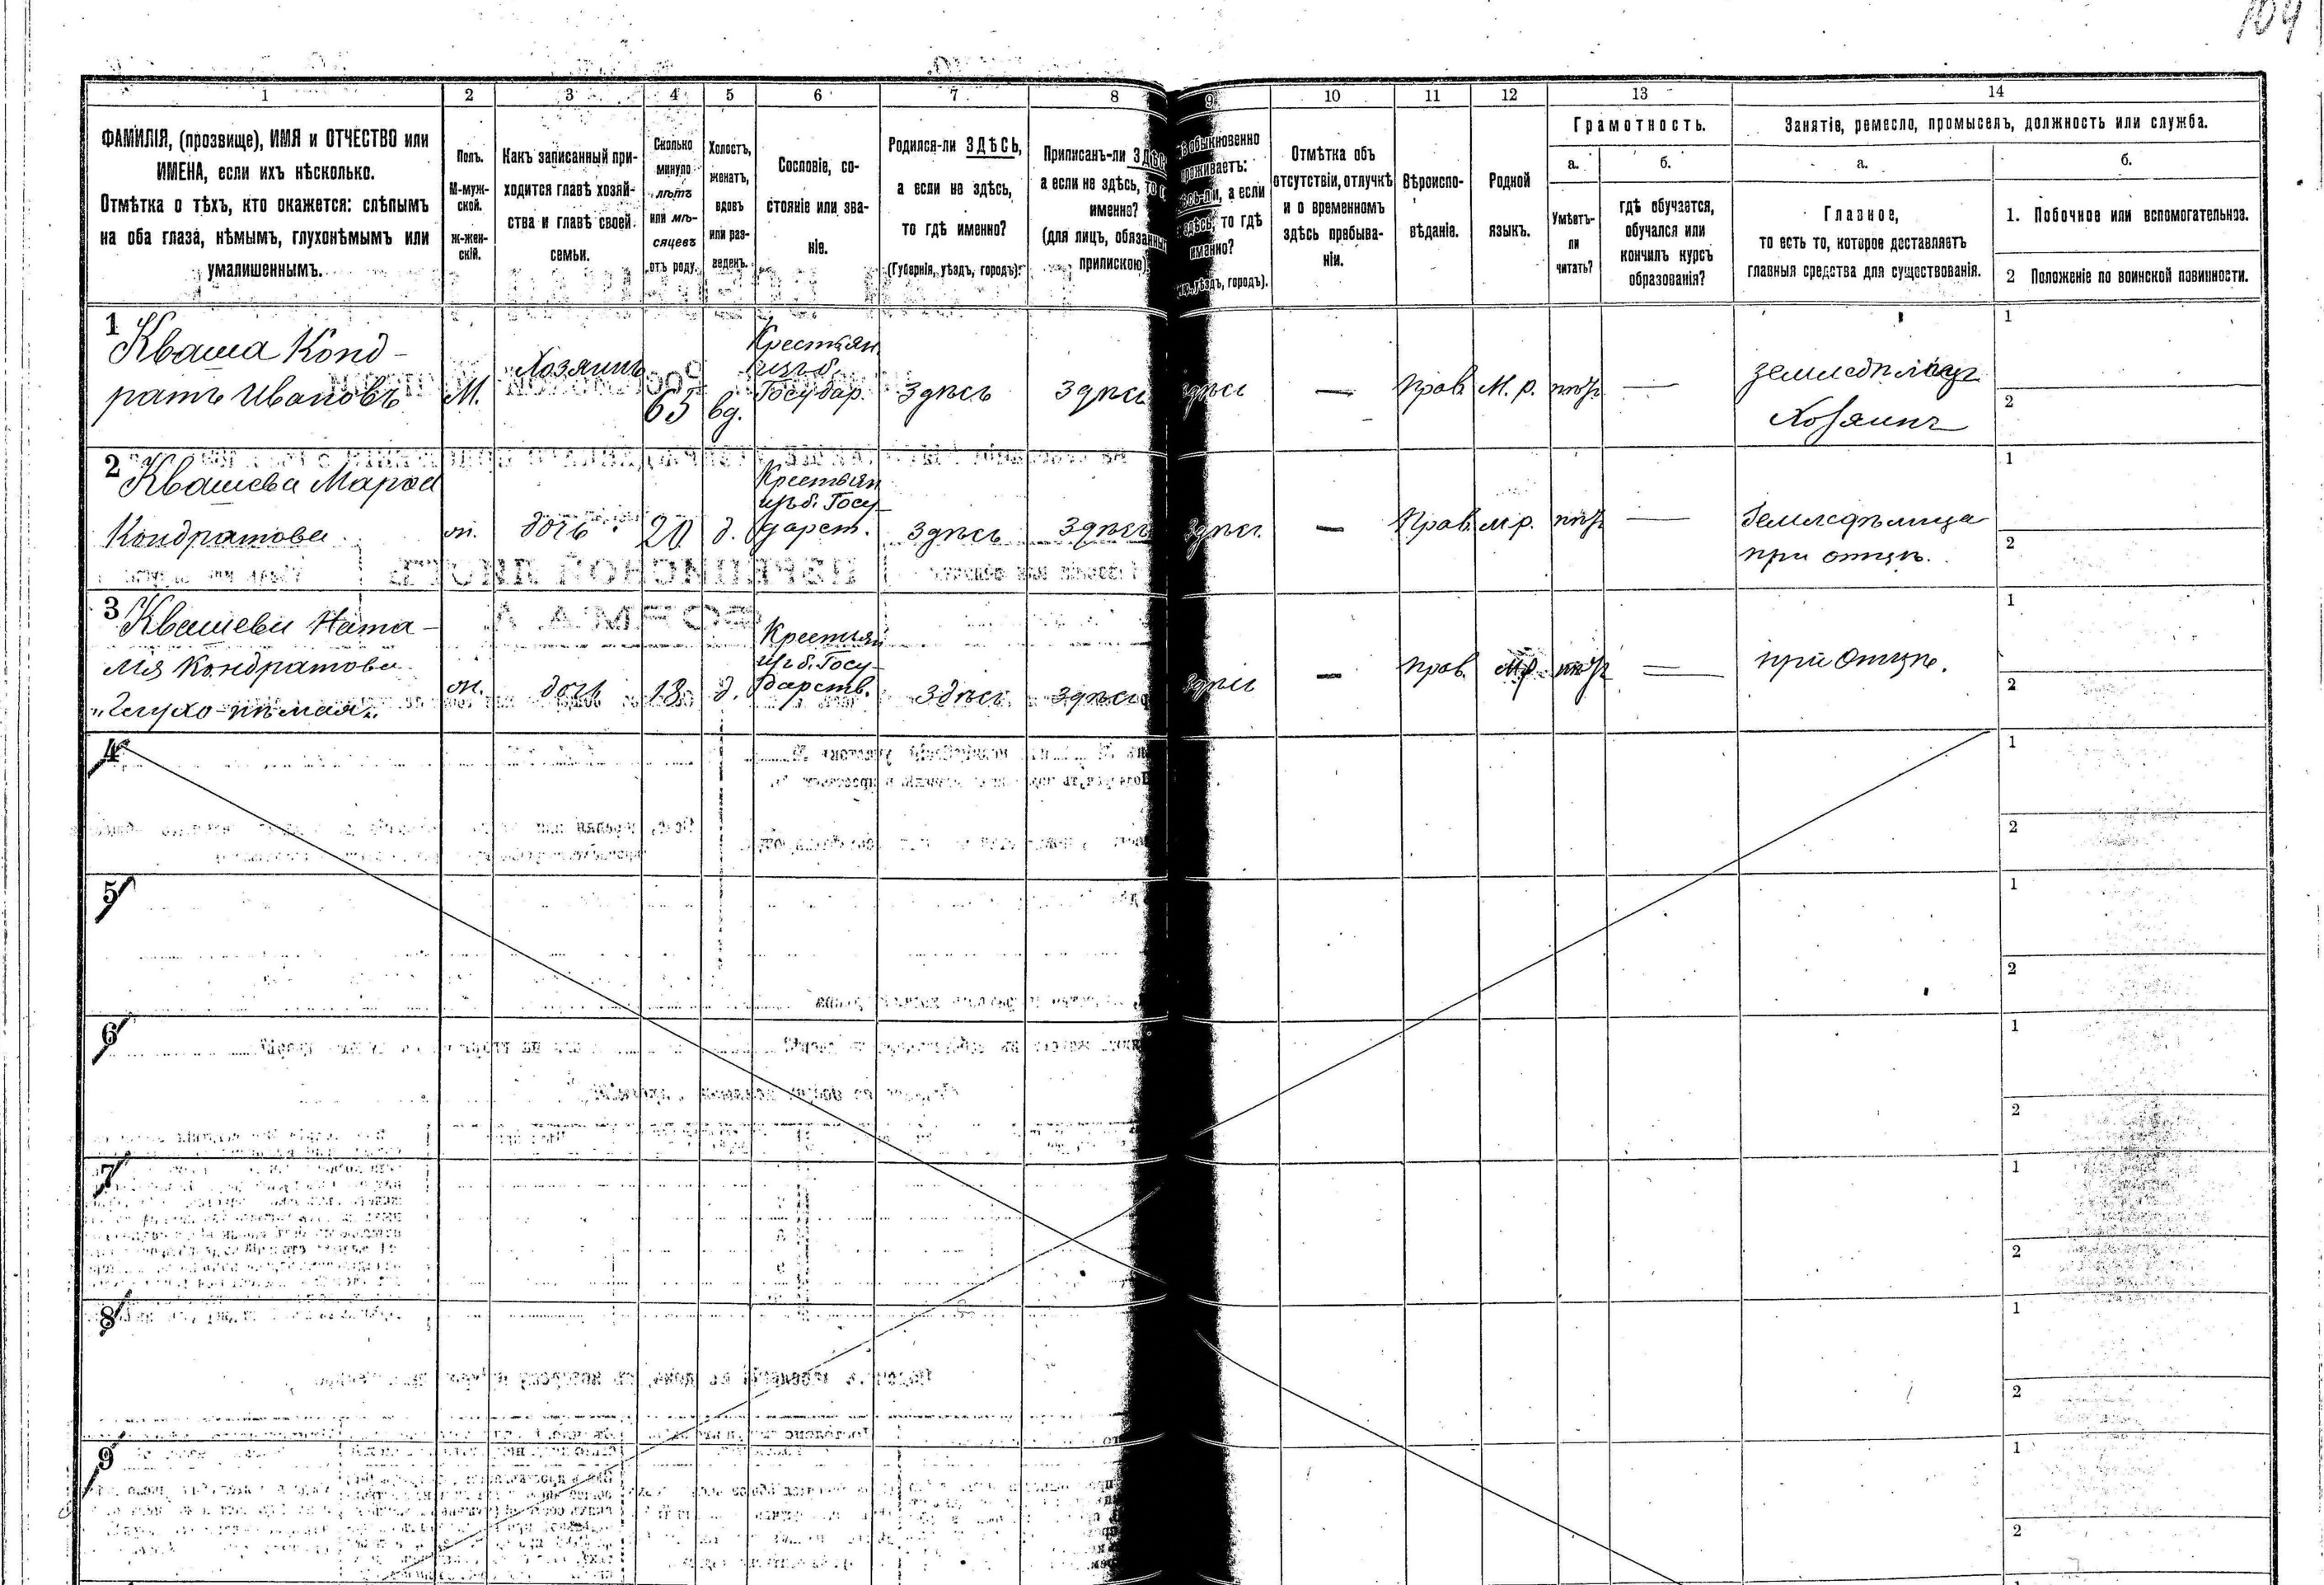 104
1 2 3 4 5 6 7 8 9 10 11 12 13 14
ФАМИЛІЯ, (прозвище), ИМЯ и ОТЧЕСТВО или
ИМЕНА, если ихъ нѣсколько.
Отмѣтка о тѣхъ, кто окажется: слѣпымъ
на оба глаза, нѣмымъ, глухонѣмымъ или
умалишеннымъ.
Полъ.
М-муж-
ской.
Ж-жен-
скій.
Какъ записанный при-
ходится главѣ хозяй-
ства и главѣ своей
семьи.
Сколько
минуло
лѣтъ
или мѣ-
сяцевъ
отъ роду.
Холостъ,
женатъ,
вдовъ
или раз-
веденъ.
Сословіе, со-
стояніе или зва-
ніе.
Родился-ли ЗДѢСЬ,
а если не здѣсь,
то гдѣ именно?
(Губернія, уѣздъ, городъ).
Приписанъ-ли
а если не здѣсь,
именно?
(для лицъ, обязанныхъ
припискою)
обыкновенно
проживаетъ:
а если
здѣсь, то гдѣ
именно?
уѣздъ, городъ).
Отмѣтка объ
отсутствіи, отлучкѣ
и о временномъ
здѣсь пребыва-
ніи.
Вѣроиспо-
вѣданіе.
Родной
языкъ.
Грамотность.
а.
Умѣетъ-
ли
читать?
б.
гдѣ обучается,
обучался или
кончилъ курсъ
образованія?
Занятіе, ремесло, промыселъ, должность или служба.
а.
Главное,
то есть то, которое доставляетъ
главныя средства для существованія.
б.
1. Побочное или вспомогательное.
2 Положеніе по воинской повинности.
1
Кваша Конд-
ратъ Ивановъ
М.
Хозяинъ
65
вд.
Крестьян.
изъ б.
Государ.
Здѣсь
Здѣсь
Здѣсь
—
Прав.
М. р.
нѣтъ
—
земледѣлецъ
Хозяинъ
1
2
2
Квашева Марѳа
Кондратова
ж.
дочь
20
д.
Крестьян.
изъ б. Госу-
дарст.
Здѣсь
Здѣсь
Здѣсь
—
Прав.
м.р.
нѣтъ
—
Земледѣлица
при отцѣ.
1
2
3
Квашева Ната-
лія Кондратова
„Глухо-нѣмая„
ж.
дочь
18
д.
Крестьян
изъ б. Госу-
дарств.
Здѣсь
Здѣсь
Здѣсь
—
Прав.
м.р.
нѣтъ
—
при Отцѣ.
1
2
4
1
2
5
1
2
6
1
2
7
1
2
8
1
2
9
1
2